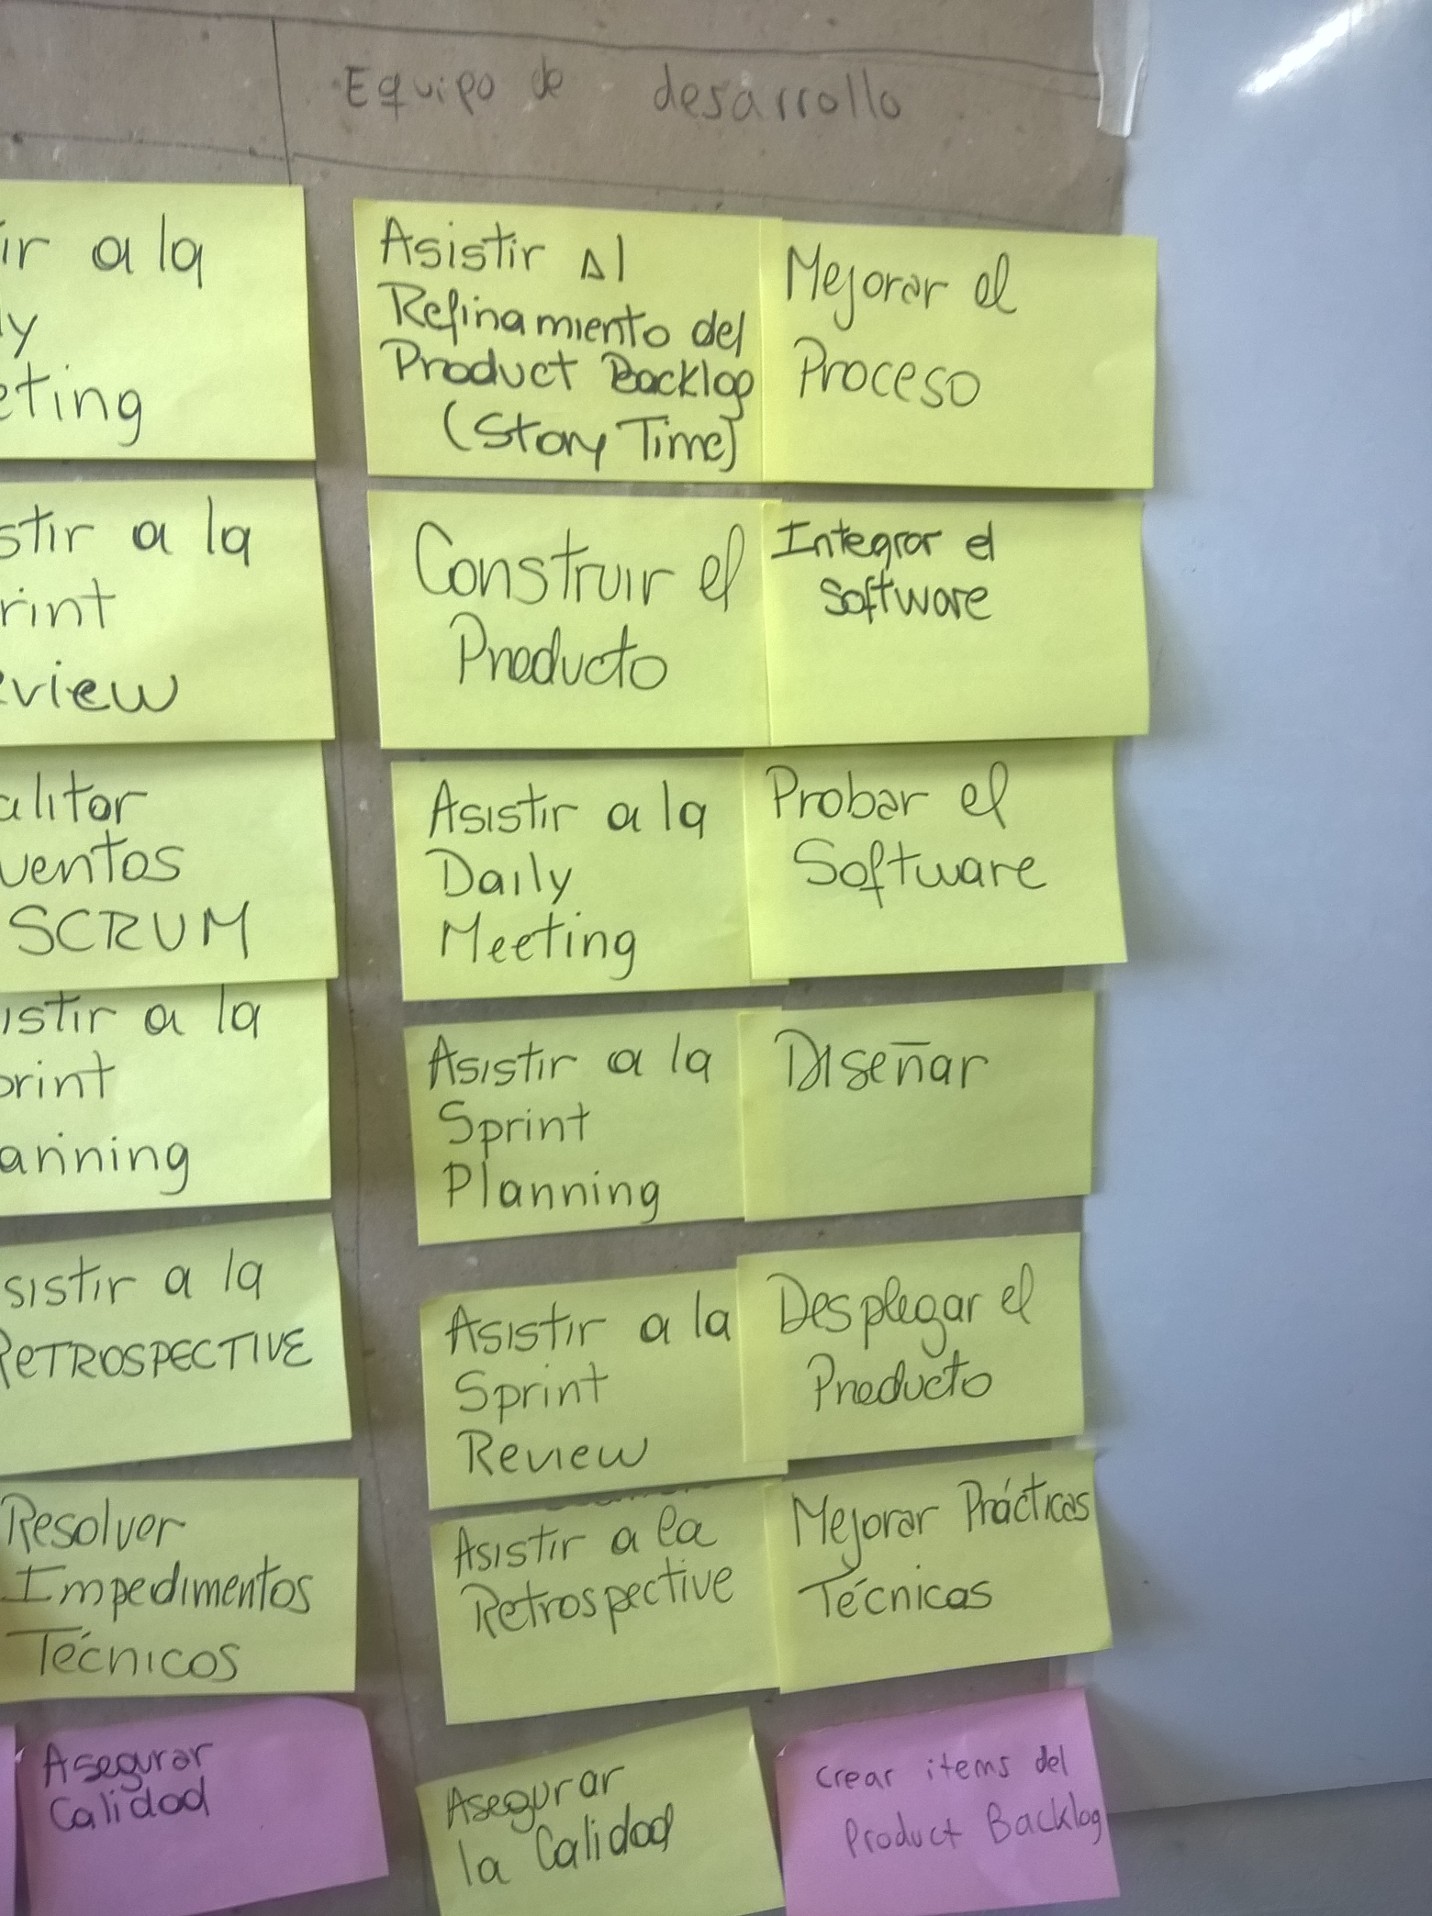 Equipo de desarrollo
ir a la
y
eting
stir a la
rint
eview
alitar
ventos
SCRUM
istir a la
print
anning
sistir a la
RETROSPECTIVE
Resolver
Impedimentos
Técnicos
Asegurar
Calidad
Asistir Al
Refinamiento del
Product Backlog
(Story Time)
Construir el
Producto
Asistir a la
Daily
Meeting
Asistir a la
Sprint
Planning
Asistir a la
Sprint
Review
Asistir a la
Retrospective
Asegurar
la Calidad
Mejorar el
Proceso
Integrar el
Software
Probar el
Software
Diseñar
Desplegar el
Producto
Mejorar Prácticas
Técnicas
Crear items del
Product Backlog